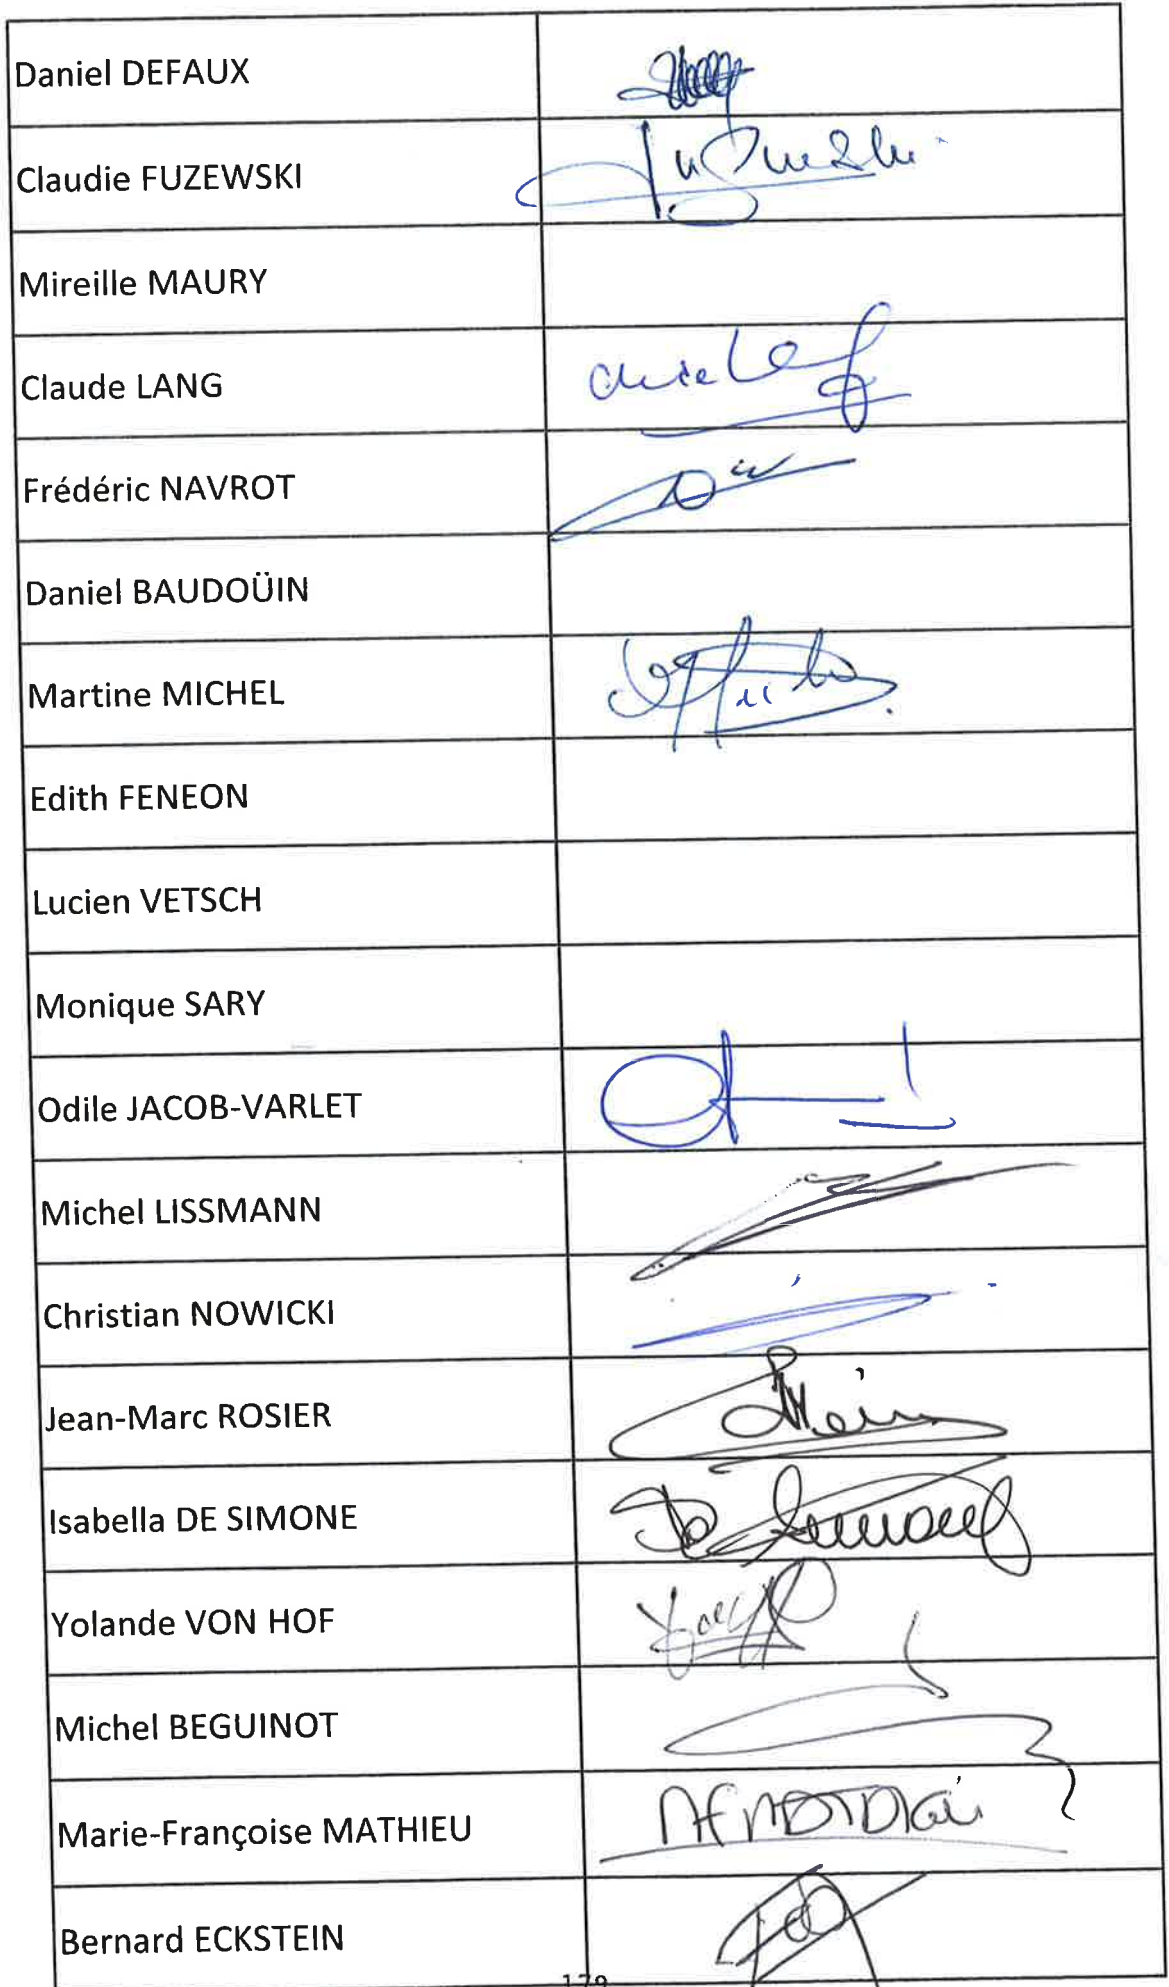 Daniel DEFAUX
Claudie FUZEWSKI
Mireille MAURY
Claude LANG
Frédéric NAVROT
Daniel BAUDOÜIN
Martine MICHEL
Edith FENEON
Lucien VETSCH
Monique SARY
Odile JACOB-VARLET
Michel LISSMANN
Christian NOWICKI
Jean-Marc ROSIER
Isabella DE SIMONE
Yolande VON HOF
Michel BEGUINOT
Marie-Françoise MATHIEU
Bernard ECKSTEIN
179